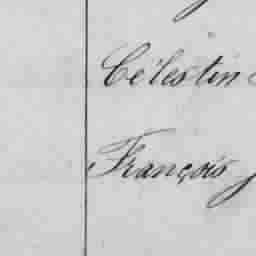 Célestin
François